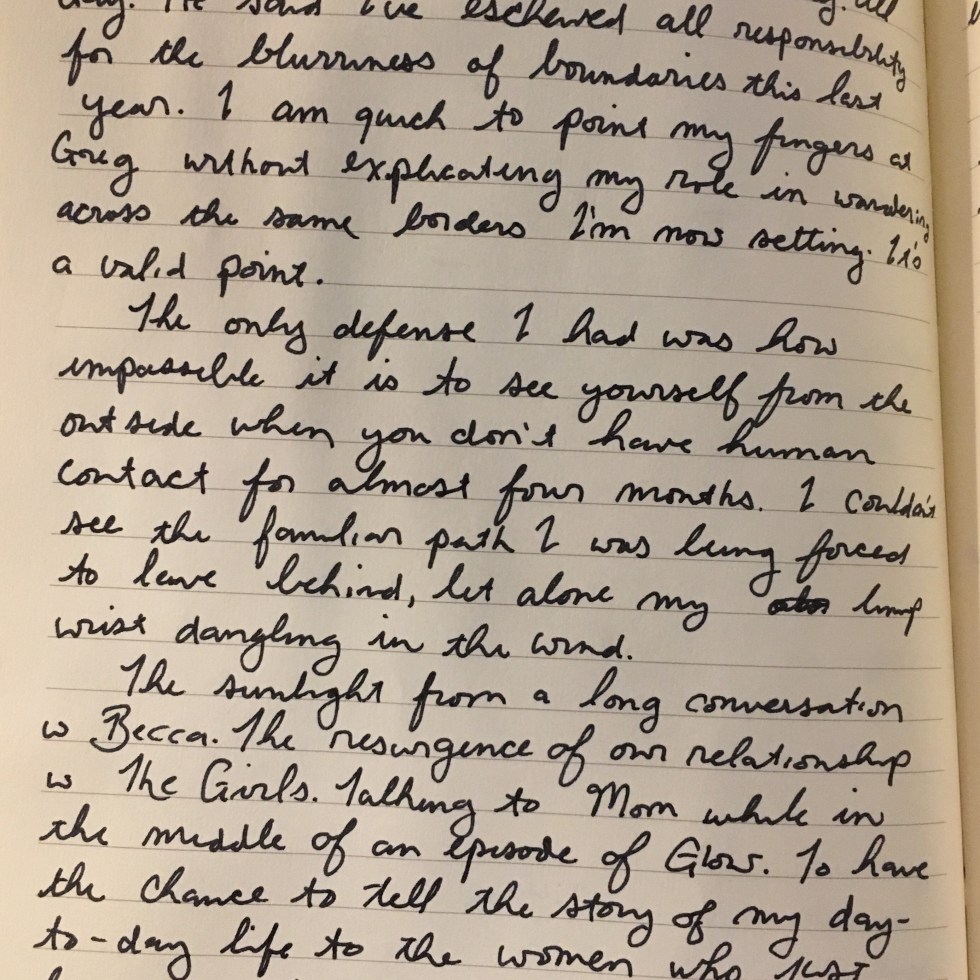 day. He said I've eschewed all responsibility
for the blurriness of boundaries this last
year. I am quick to point my fingers at
Greg without explicating my role in wandering
across the same borders I'm now setting. It's
a valid point.
The only defense I had was how
impossible it is to see yourself from the
outside when you don't have human
contact for almost four months. I couldn't
see the familiar path I was being forced
to leave behind, let alone my limp
wrist dangling in the wind.
The sunlight from a long conversation
w Becca. The resurgence of our relationship
w The Girls. Talking to Mom while in
the middle of an episode of Glow. To have
the chance to tell the story of my day-
to-day life to the women who just